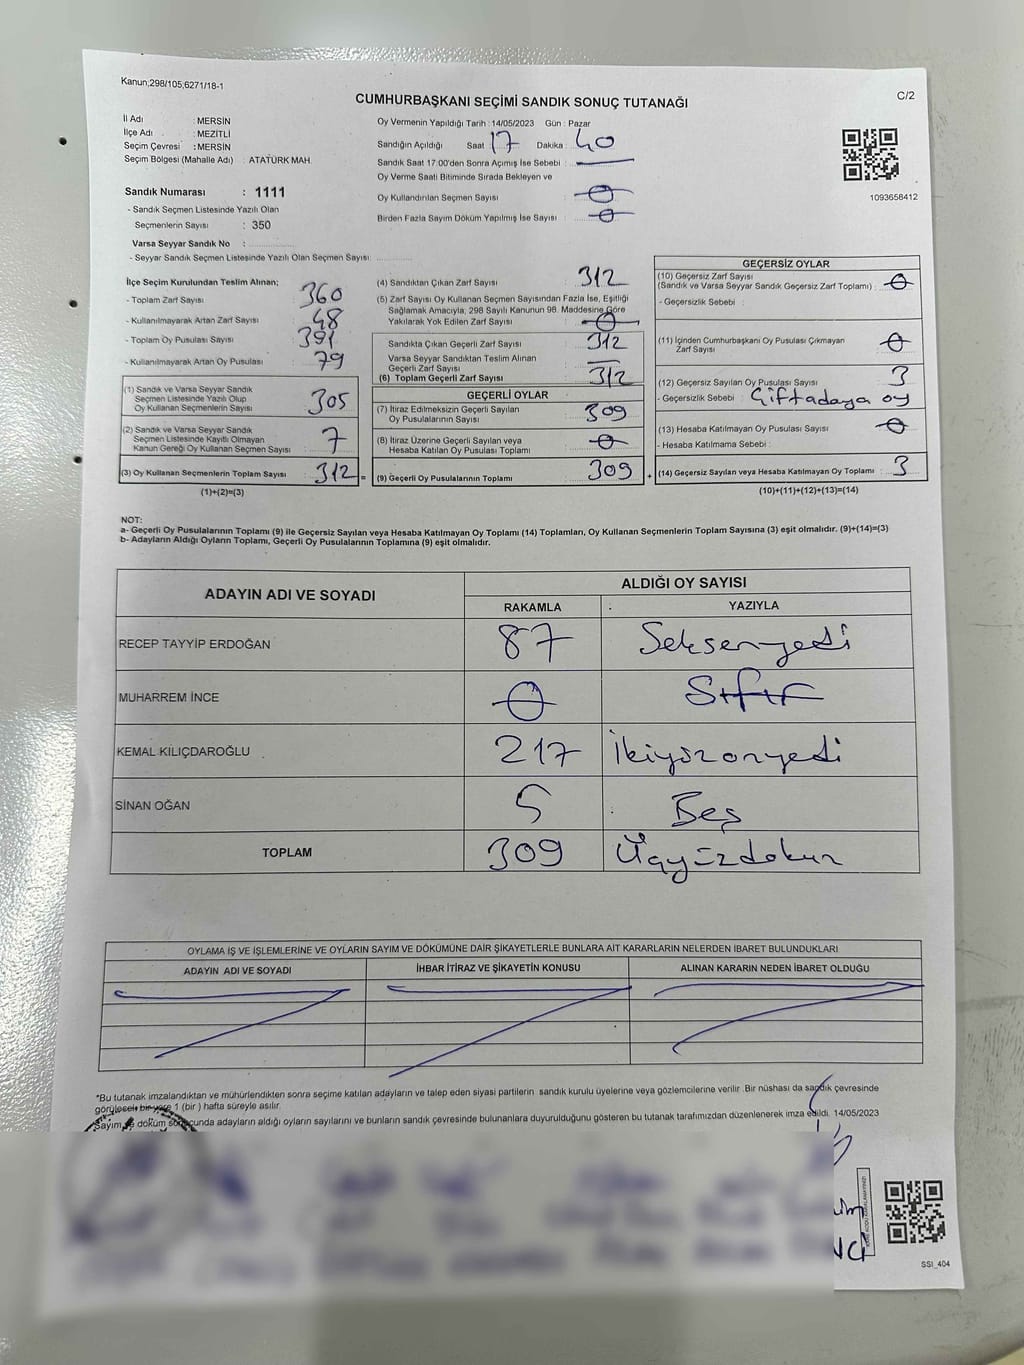 Kanun;298/105;6271/18-1
C/2
CUMHURBAŞKANI SEÇİMİ SANDIK SONUÇ TUTANAĞI
İl Adı : MERSİN
İlçe Adı : MEZİTLİ
Seçim Çevresi : MERSİN
Seçim Bölgesi (Mahalle Adı) : ATATÜRK MAH.
Sandık Numarası : 1111
- Sandık Seçmen Listesinde Yazılı Olan
Seçmenlerin Sayısı : 350
Varsa Seyyar Sandık No :
- Seyyar Sandık Seçmen Listesinde Yazılı Olan Seçmen Sayısı:
Oy Vermenin Yapıldığı Tarih : 14/05/2023 Gün : Pazar
Sandığın Açıldığı Saat 17 Dakika : 40
Sandık Saat 17:00'den Sonra Açımış İse Sebebi :
Oy Verme Saati Bitiminde Sırada Bekleyen ve
Oy Kullandırılan Seçmen Sayısı : 0
Birden Fazla Sayım Döküm Yapılmış İse Sayısı : 0
1093658412
İlçe Seçim Kurulundan Teslim Alınan;
- Toplam Zarf Sayısı 360
- Kullanılmayarak Artan Zarf Sayısı : 48
- Toplam Oy Pusulası Sayısı 391
- Kullanılmayarak Artan Oy Pusulası : 79
(1) Sandık ve Varsa Seyyar Sandık
Seçmen Listesinde Yazılı Olup
Oy Kullanan Seçmenlerin Sayısı 305
(2) Sandık ve Varsa Seyyar Sandık
Seçmen Listesinde Kayıtlı Olmayan
Kanun Gereği Oy Kullanan Seçmen Sayısı 7
(3) Oy Kullanan Seçmenlerin Toplam Sayısı 312
(1)+(2)=(3)
(4) Sandıktan Çıkan Zarf Sayısı 312
(5) Zarf Sayısı Oy Kullanan Seçmen Sayısından Fazla İse, Eşitliği
Sağlamak Amacıyla; 298 Sayılı Kanunun 98. Maddesine Göre
Yakılarak Yok Edilen Zarf Sayısı : 0
Sandıkta Çıkan Geçerli Zarf Sayısı 312
Varsa Seyyar Sandıktan Teslim Alınan
Geçerli Zarf Sayısı
(6) Toplam Geçerli Zarf Sayısı 312
GEÇERLİ OYLAR
(7) İtiraz Edilmeksizin Geçerli Sayılan
Oy Pusulalarının Sayısı 309
(8) İtiraz Üzerine Geçerli Sayılan veya
Hesaba Katılan Oy Pusulası Toplamı 0
(9) Geçerli Oy Pusulalarının Toplamı 309
GEÇERSİZ OYLAR
(10) Geçersiz Zarf Sayısı
(Sandık ve Varsa Seyyar Sandık Geçersiz Zarf Toplamı) : 0
- Geçersizlik Sebebi :
(11) İçinden Cumhurbaşkanı Oy Pusulası Çıkmayan
Zarf Sayısı 0
(12) Geçersiz Sayılan Oy Pusulası Sayısı 3
- Geçersizlik Sebebi : Çiftadaya oy
(13) Hesaba Katılmayan Oy Pusulası Sayısı 0
- Hesaba Katılmama Sebebi :
(14) Geçersiz Sayılan veya Hesaba Katılmayan Oy Toplamı 3
(10)+(11)+(12)+(13)=(14)
NOT:
a- Geçerli Oy Pusulalarının Toplamı (9) ile Geçersiz Sayılan veya Hesaba Katılmayan Oy Toplamı (14) Toplamları, Oy Kullanan Seçmenlerin Toplam Sayısına (3) eşit olmalıdır. (9)+(14)=(3)
b- Adayların Aldığı Oyların Toplamı, Geçerli Oy Pusulalarının Toplamına (9) eşit olmalıdır.
ADAYIN ADI VE SOYADI ALDIĞI OY SAYISI
RAKAMLA YAZIYLA
RECEP TAYYİP ERDOĞAN 87 Seksenyedi
MUHARREM İNCE 0 Sıfır
KEMAL KILIÇDAROĞLU 217 İkiyüzonyedi
SİNAN OĞAN 5 Beş
TOPLAM 309 Üçyüzdokuz
OYLAMA İŞ VE İŞLEMLERİNE VE OYLARIN SAYIM VE DÖKÜMÜNE DAİR ŞİKAYETLERLE BUNLARA AİT KARARLARIN NELERDEN İBARET BULUNDUKLARI
ADAYIN ADI VE SOYADI İHBAR İTİRAZ VE ŞİKAYETİN KONUSU ALINAN KARARIN NEDEN İBARET OLDUĞU
*Bu tutanak imzalandıktan ve mühürlendikten sonra seçime katılan adayların ve talep eden siyasi partilerin sandık kurulu üyelerine veya gözlemcilerine verilir .Bir nüshası da sandık çevresinde
görülecek bir yere 1 (bir ) hafta süreyle asılır.
Sayım ve döküm sonucunda adayların aldığı oyların sayılarını ve bunların sandık çevresinde bulunanlara duyurulduğunu gösteren bu tutanak tarafımızdan düzenlenerek imza edildi. 14/05/2023
SSI_404